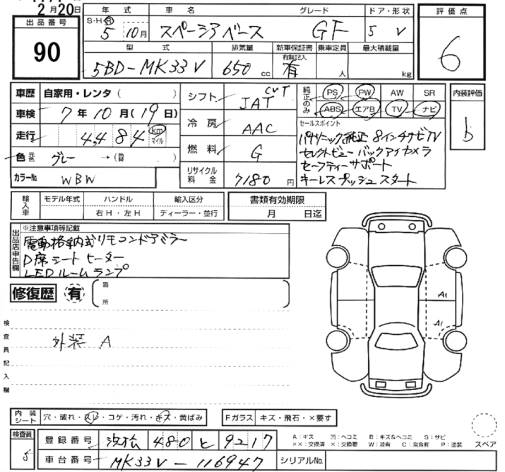 2月20日
出品番号
90
年式
車名
グレード
ドア・形状
評価点
S・H
5年10月
スペーシアベース
GF
5 V
6
型式
排気量
新車保証書
有 記録簿
乗車定員
最大積載量
5BD-MK33V
650 cc
有
人
kg
車歴
自家用・レンタ
車検
7年10月(19日)
走行
4484
km
マイル
色
グレー
カラーNo
WBW
シフト
CVT
JAT
冷房
AAC
燃料
G
リサイクル料金
7180円
純正のみ
PS PW AW SR
ABS エアB TV ナビ
内装評価
b
セールスポイント
パナソニック純正8インチナビTV
セレクトビューバックアイカメラ
セーフティーサポート
キーレスプッシュスタート
輸入車
モデル年式
ハンドル
右H・左H
輸入区分
ディーラー・並行
書類有効期限
月 日迄
出品店申告欄
※注意事項等記載
電動格納式リモコンドアミラー
D席シートヒーター
LEDルームランプ
修復歴
有
箇所
検査員記入欄
外装 A
A1
A1
内装シート
穴・破れ・スレ・コゲ・汚れ・キズ・黄ばみ
Fガラス
キズ・飛石・×要す
スペア
検査員
5
登録番号
浜松 480 と 9217
車台番号
MK33V-116947
シリアルNo.
A:キズ U:ヘコミ B:キズ&ヘコミ S:サビ